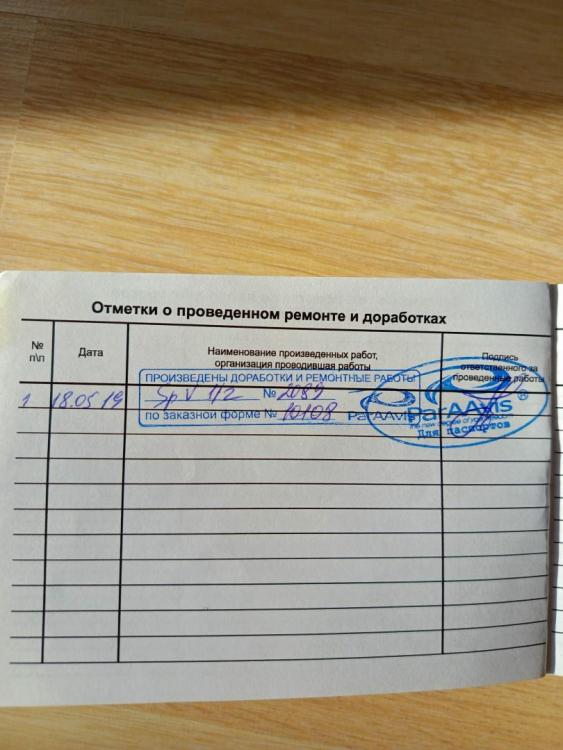 Отметки о проведенном ремонте и доработках
№ п\п
Дата
Наименование произведенных работ,
организация проводившая работы
Подпись
ответственного за
проведенные работы
ПРОИЗВЕДЕНЫ ДОРАБОТКИ И РЕМОНТНЫЕ РАБОТЫ
1 18.05 19 Sp V 1/2 № 2089
по заказной форме № 10108 ParAAvis
ParAAvis ®
Для паспортов